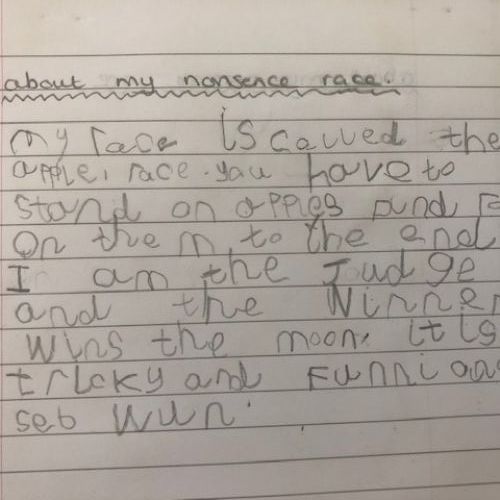 about my nonsence race.
my race is called the
apple, race. you have to
stand on apples and
on them, to the end
I am the Judge
and the winner
wins the moon. it is
tricky and Funni
seb wun.